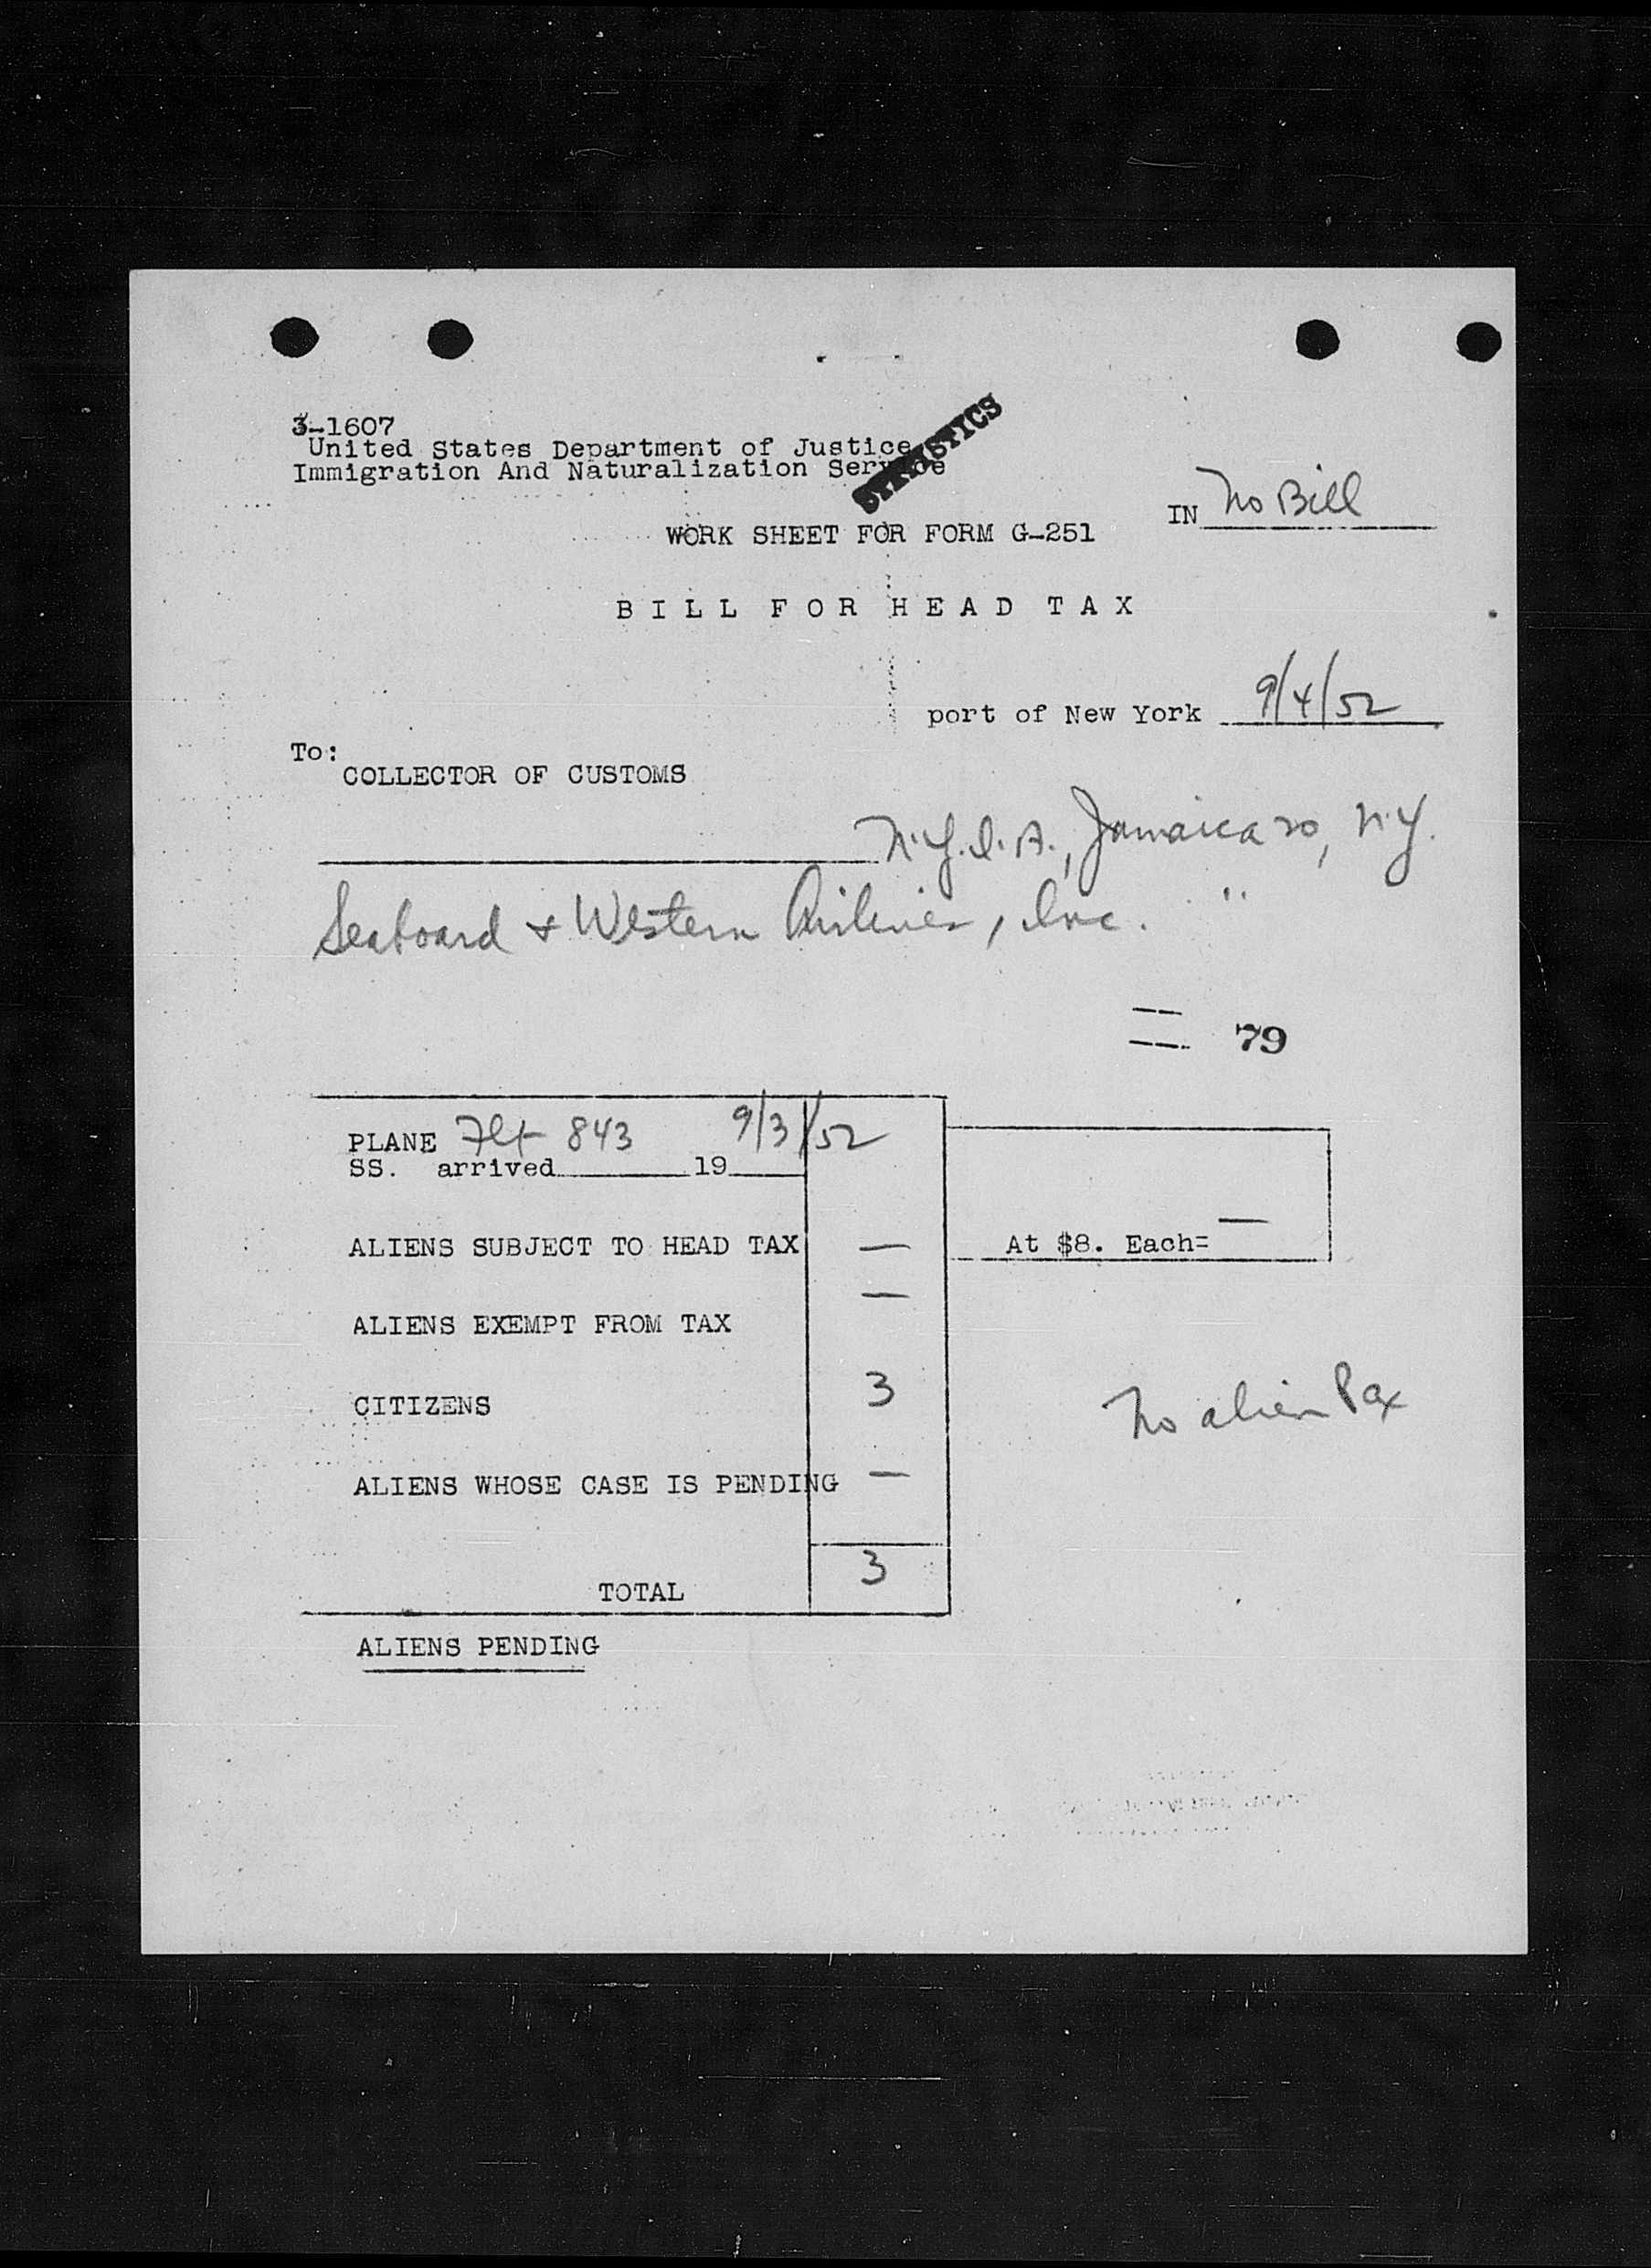 3-1607
United States Department of Justice
Immigration And Naturalization Service
STATISTICS
IN No Bill
WORK SHEET FOR FORM G-251
BILL FOR HEAD TAX
port of New York 9/4/52
To:
COLLECTOR OF CUSTOMS
N.Y.I.A., Jamaica 20, N.Y.
Seaboard & Western Airlines, Inc. "
79
PLANE Flt 843 9/3/52
SS. arrived 19
ALIENS SUBJECT TO HEAD TAX — At $8. Each= —
ALIENS EXEMPT FROM TAX —
CITIZENS 3
No alien Pax
ALIENS WHOSE CASE IS PENDING —
TOTAL 3
ALIENS PENDING